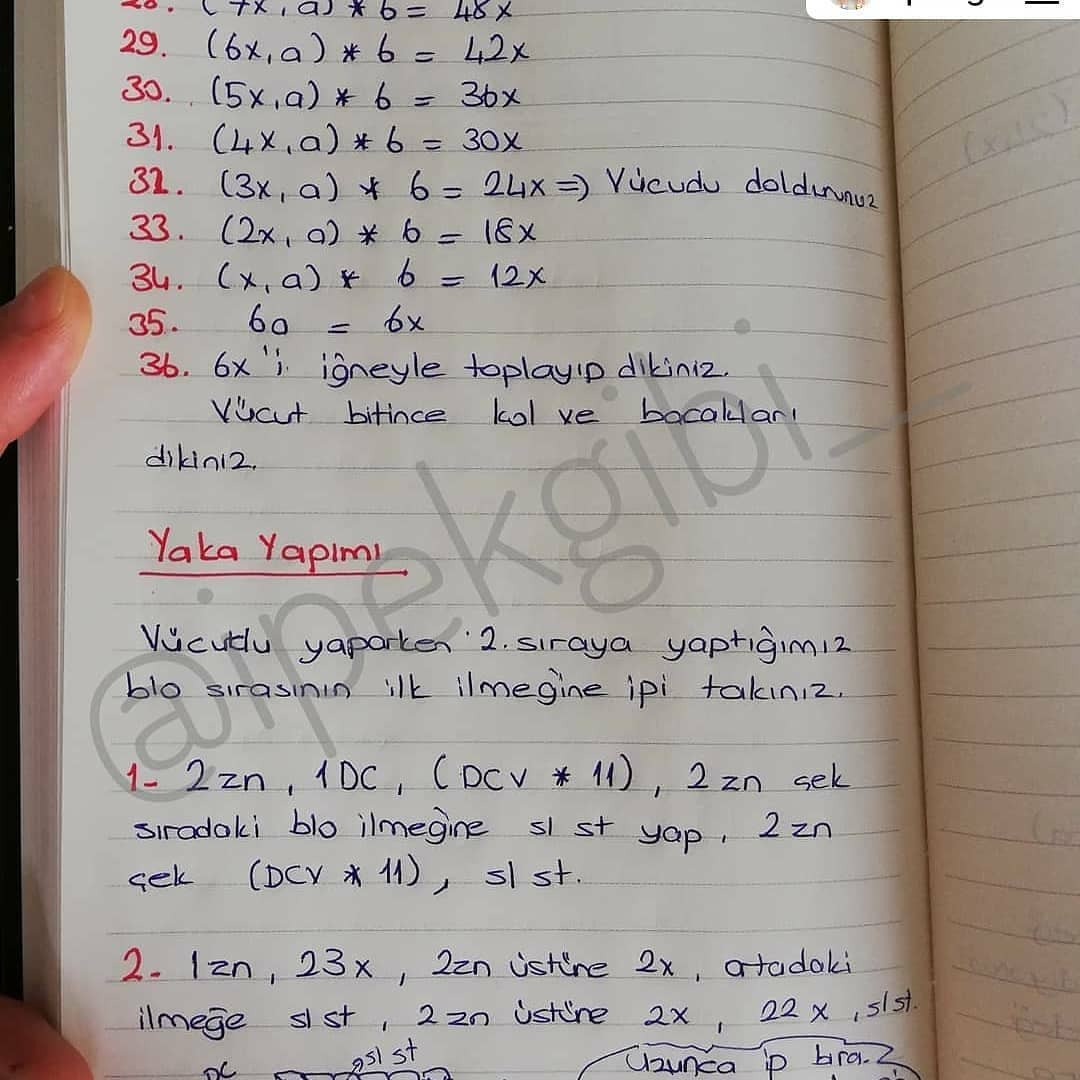 28. (7x, a) * 6 = 48x
29. (6x, a) * 6 = 42x
30. (5x, a) * 6 = 36x
31. (4x, a) * 6 = 30x
32. (3x, a) * 6 = 24x => Vücudu doldurunuz
33. (2x, a) * 6 = 18x
34. (x, a) * 6 = 12x
35. 6a = 6x
36. 6x'i iğneyle toplayıp dikiniz.
Vücut bitince kol ve bacakları
dikiniz.
Yaka Yapımı
Vücudu yaparken 2. sıraya yaptığımız
blo sırasının ilk ilmeğine ipi takınız.
1- 2 zn, 1 DC, (DCV * 11), 2 zn çek
sıradaki blo ilmeğine sl st yap, 2 zn
çek (DCV * 11), sl st.
2- 1 zn, 23 x, 2zn üstüne 2x, ortadaki
ilmeğe sl st, 2 zn üstüne 2x, 22 x, sl st.
DC sl st Uzunca ip
@ipekgibi__